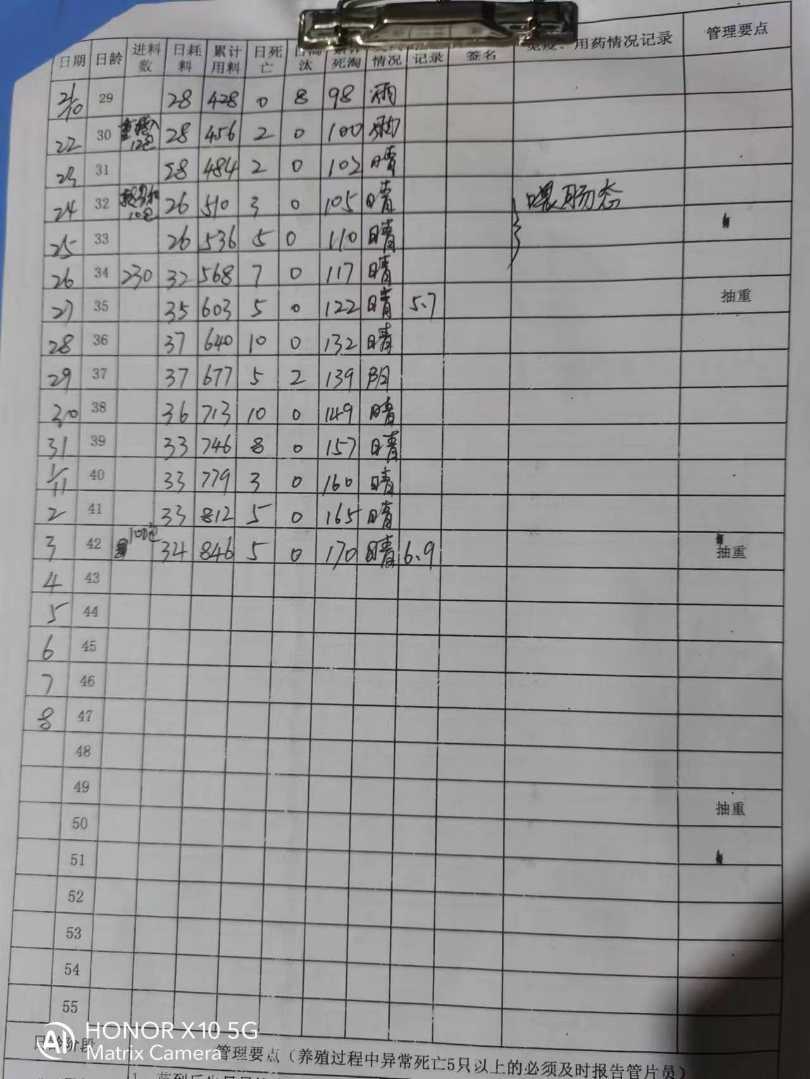 日期 日龄 进料数 日耗料 累计用料 日死亡 汰 死淘 情况 记录 签名 用药情况记录 管理要点
21/10 29 28 428 0 8 98 雨
22 30 12包 28 456 2 0 100
23 31 28 484 2 0 102 晴
24 32 10包 26 510 3 0 105 晴 喂肠态
25 33 26 536 5 0 110 晴
26 34 230 32 568 7 0 117 晴
27 35 35 603 5 0 122 晴 5.7 抽重
28 36 37 640 10 0 132 晴
29 37 37 677 5 2 139 阴
30 38 36 713 10 0 149 晴
31 39 33 746 8 0 157 晴
1/11 40 33 779 3 0 160 晴
2 41 33 812 5 0 165 晴
3 42 100包 34 846 5 0 170 晴 6.9 抽重
4 43
5 44
6 45
7 46
8 47
48
49
50 抽重
51
52
53
54
55
日龄阶段 管理要点（养殖过程中异常死亡5只以上的必须及时报告管片员）
HONOR X10 5G
Matrix Camera
AI